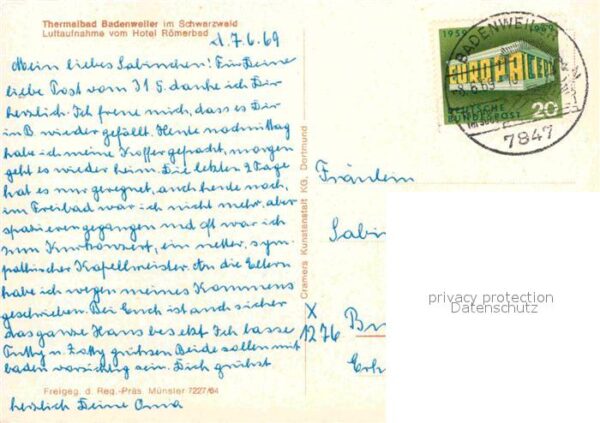 Thermalbad Badenweiler im Schwarzwald
Luftaufnahme vom Hotel Römerbad
d. 7.6.69
Mein liebes Sabinchen! Für Deine
liebe Post vom 31.5. danke ich Dir
herzlich. Ich freue mich, dass es Dir
in B. wieder gefällt. Heute nachmittag
habe ich meine Koffer gepackt, morgen
geht es wieder heim. Die letzten 2 Tage
hat es nur geregnet, auch heute noch,
im Freibad war ich nicht mehr, aber
spazieren gegangen und oft war ich
zum Kurkonzert, ein netter, sym-
pathischer Kapellmeister. An die Eltern
habe ich wegen meines Kommens
geschrieben. Bei Euch ist auch sicher
das ganze Haus besetzt. Ich lasse
u. grüssen. Beide sollen mit
baden vorsichtig sein. Dich grüsst
Freigeg. d. Reg.-Präs. Münster 7227/64
herzlich Deine Oma
Cramers Kunstanstalt KG, Dortmund
1959 1969
EUROPA CEPT
DEUTSCHE BUNDESPOST
20
BADENWEILER
-8.6.69
7847
Fräulein
Sabin
X
1276 Bu
Erh
privacy protection
Datenschutz